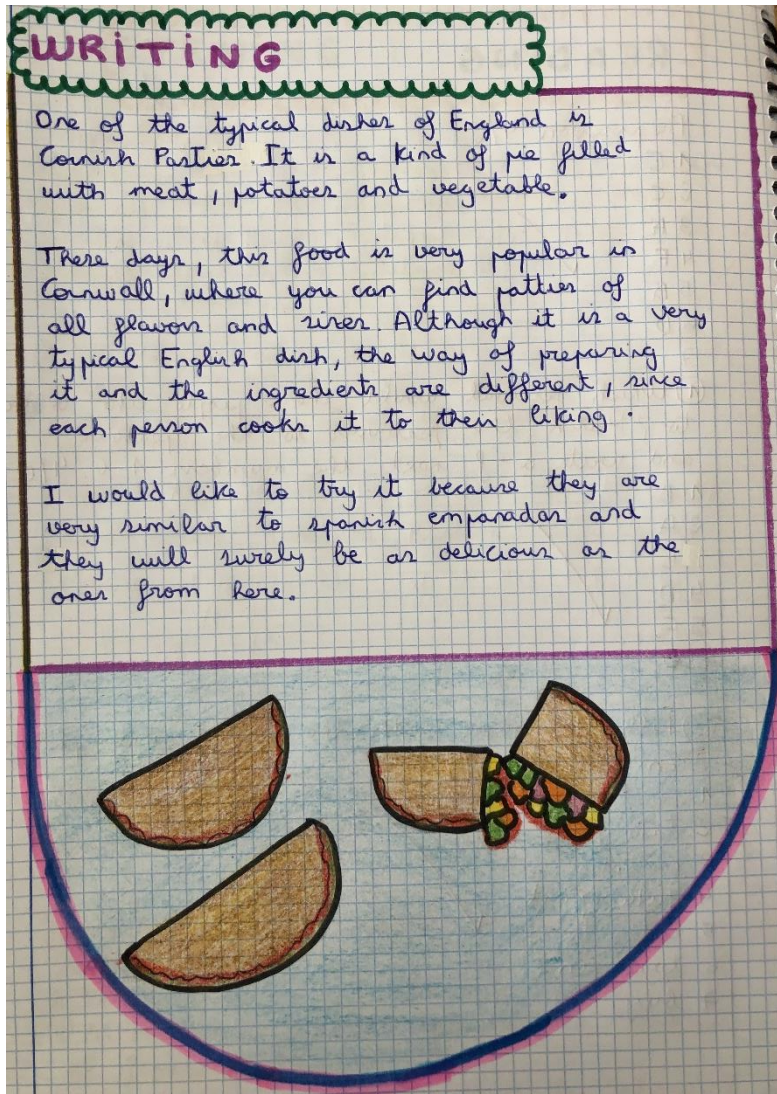 WRiTiNG
One of the typical dishes of England is
Cornish Pasties. It is a kind of pie filled
with meat, potatoes and vegetable.
These days, this food is very popular in
Cornwall, where you can find patties of
all flavors and sizes. Although it is a very
typical English dish, the way of preparing
it and the ingredients are different, since
each person cooks it to their liking.
I would like to try it because they are
very similar to spanish empanadas and
they will surely be as delicious as the
ones from here.